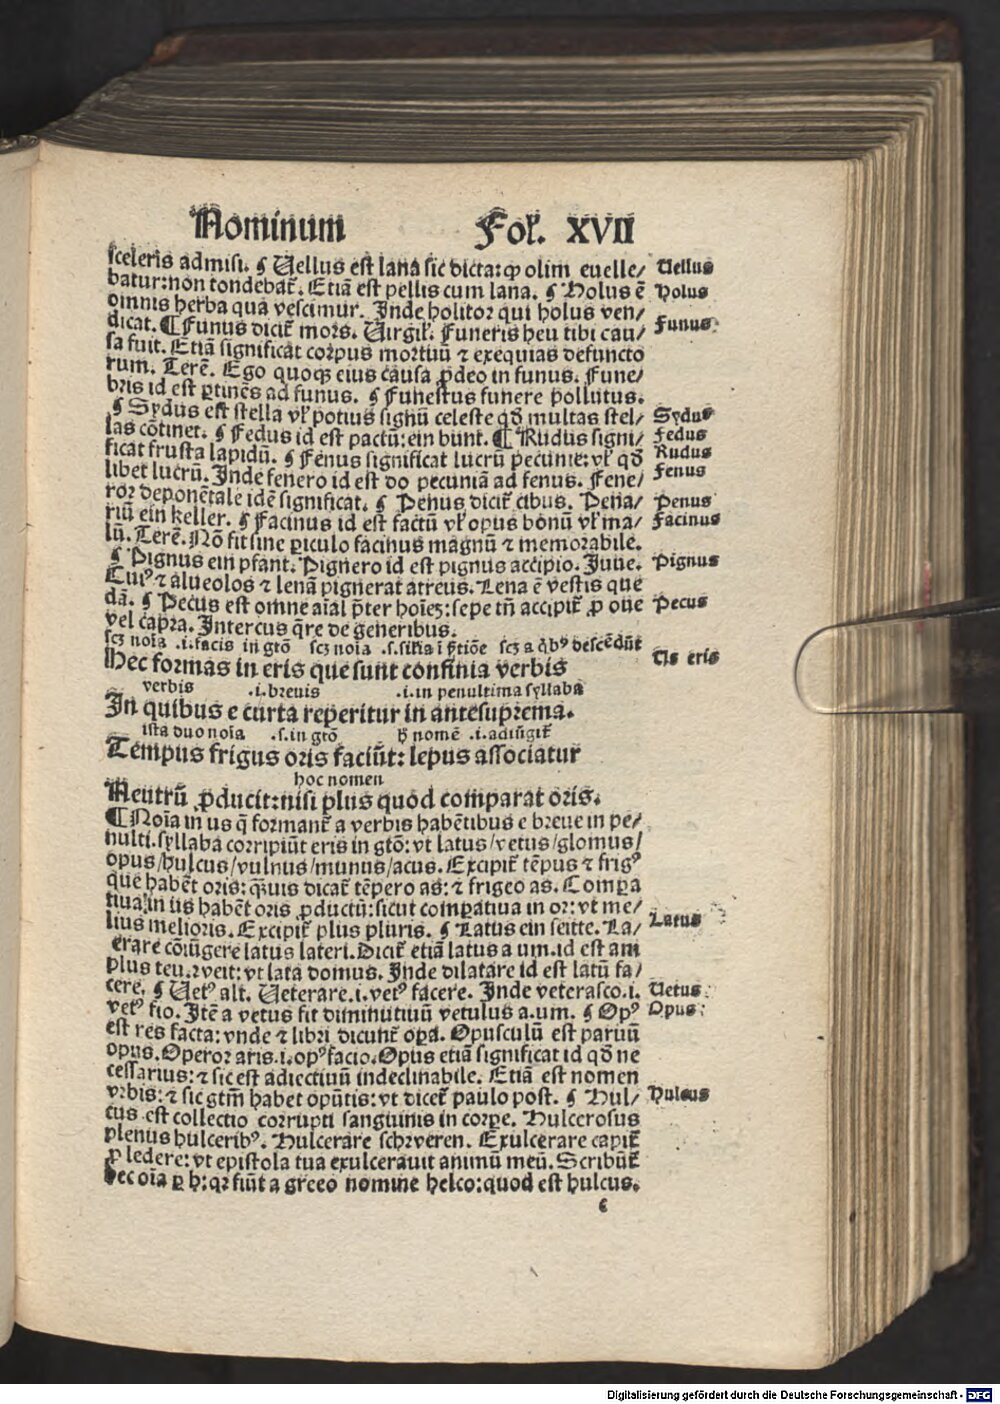 Nominum Fol. XVII
sceleris admisi. ¶ Uellus est lana sic dicta: ꝙ olim euelle/ Uellus
batur: non tondebat̃. Etiã est pellis cum lana. ¶ Holus ẽ Holus
omnis herba qua vescimur. Inde holitor qui holus ven/
dicat. ¶ Funus dicit̃ mors. Uirgil̃. Funeris heu tibi cau/ Funus
sa fuit. Etiã significat corpus mortuũ ⁊ exequias defuncto
rum. Terẽ. Ego quoqꝫ eius causa ꝓdeo in funus. Fune/
bris id est ꝑtinẽs ad funus. ¶ Funestus funere pollutus.
¶ Sydus est stella vl̃ potius signũ celeste qð multas stel/ Sydus
las cõtinet. ¶ Fedus id est pactũ: ein bunt. ¶ Rudus signi/ Fedus
ficat frusta lapidũ. ¶ Fenus significat lucrũ pecunie: vl̃ qð Rudus
libet lucrũ. Inde fenero id est do pecuniã ad fenus. Fene/ Fenus
ror deponẽtale idẽ significat. ¶ Penus dicit̃ cibus. Pena/ Penus
riũ ein keller. ¶ Facinus id est factũ vl̃ opus bonũ vl̃ ma/ Facinus
lũ. Terẽ. Nõ fit sine ꝑiculo facinus magnũ ⁊ memorabile.
¶ Pignus ein pfant. Pignero id est pignus accipio. Juue. Pignus
Cuiꝰ ⁊ alueolos ⁊ lenã pignerat atreus. Lena ẽ vestis que
dã. ¶ Pecus est omne aĩal p̃ter hoĩeꝫ: sepe tñ accipit̃ ꝓ oue Pecus
vel capra. Intercus q̃re de generibus.
scꝫ noĩa .i. facis in gtõ scꝫ noĩa .s. silia ĩ ꝑtiõe scꝫ a qͥbꝰ descẽdũt
Hec formas in eris que sunt confinia verbis Us eris
verbis .i. breuis .i. in penultima syllaba
In quibus e curta reperitur in antesuprema.
ista duo noĩa .s. in gtõ h̃ nomẽ .i. adiũgit̃
Tempus frigus oris faciũt: lepus associatur
hoc nomen
Neutrũ ꝓducit: nisi plus quod comparat oris.
¶ Noĩa in us q̃ formant̃ a verbis habẽtibus e breue in pe/
nulti. syllaba corripiũt eris in gtõ: vt latus/vetus/glomus/
opus/hulcus/vulnus/munus/acus. Excipit̃ tẽpus ⁊ frigꝰ
que habẽt oris: q̃uis dicat̃ tẽpero as: ⁊ frigeo as. Compa
tiua: in us habẽt oris ꝓductũ: sicut comꝑatiua in or: vt me/
lius melioris. Excipit̃ plus pluris. ¶ Latus ein seitte. La/ Latus
erare cõiũgere latus lateri. Dicit̃ etiã latus a um. id est am
plus teu. ꝛ veit: vt lata domus. Inde dilatare id est latũ fa/
cere. ¶ Uetꝰ alt. Ueterare .i. vetꝰ facere. Inde veterasco .i. Uetus
vetꝰ fio. Itẽ a vetus fit diminutiuũ vetulus a. um. ¶ Opꝰ Opus
est res facta: vnde ⁊ libri dicunt̃ oꝑa. Opusculũ est paruũ
opus. Operor aris .i. opꝰ facio. Opus etiã significat id qð ne
cessarius: ⁊ sic est adiectiuũ indeclinabile. Etiã est nomen
vrbis: ⁊ sic gtm̃ habet opũtis: vt dicet̃ paulo post. ¶ Hul/ Hulcus
cus est collectio corrupti sanguinis in corꝑe. Hulcerosus
plenus hulceribꝰ. Hulcerare schweren. Exulcerare capit̃
ꝓ ledere: vt epistola tua exulcerauit animũ meũ. Scribũt̃
hec oĩa ꝑ h: qꝛ fiũt a greco nomine helco: quod est hulcus.
c
Digitalisierung gefördert durch die Deutsche Forschungsgemeinschaft - DFG